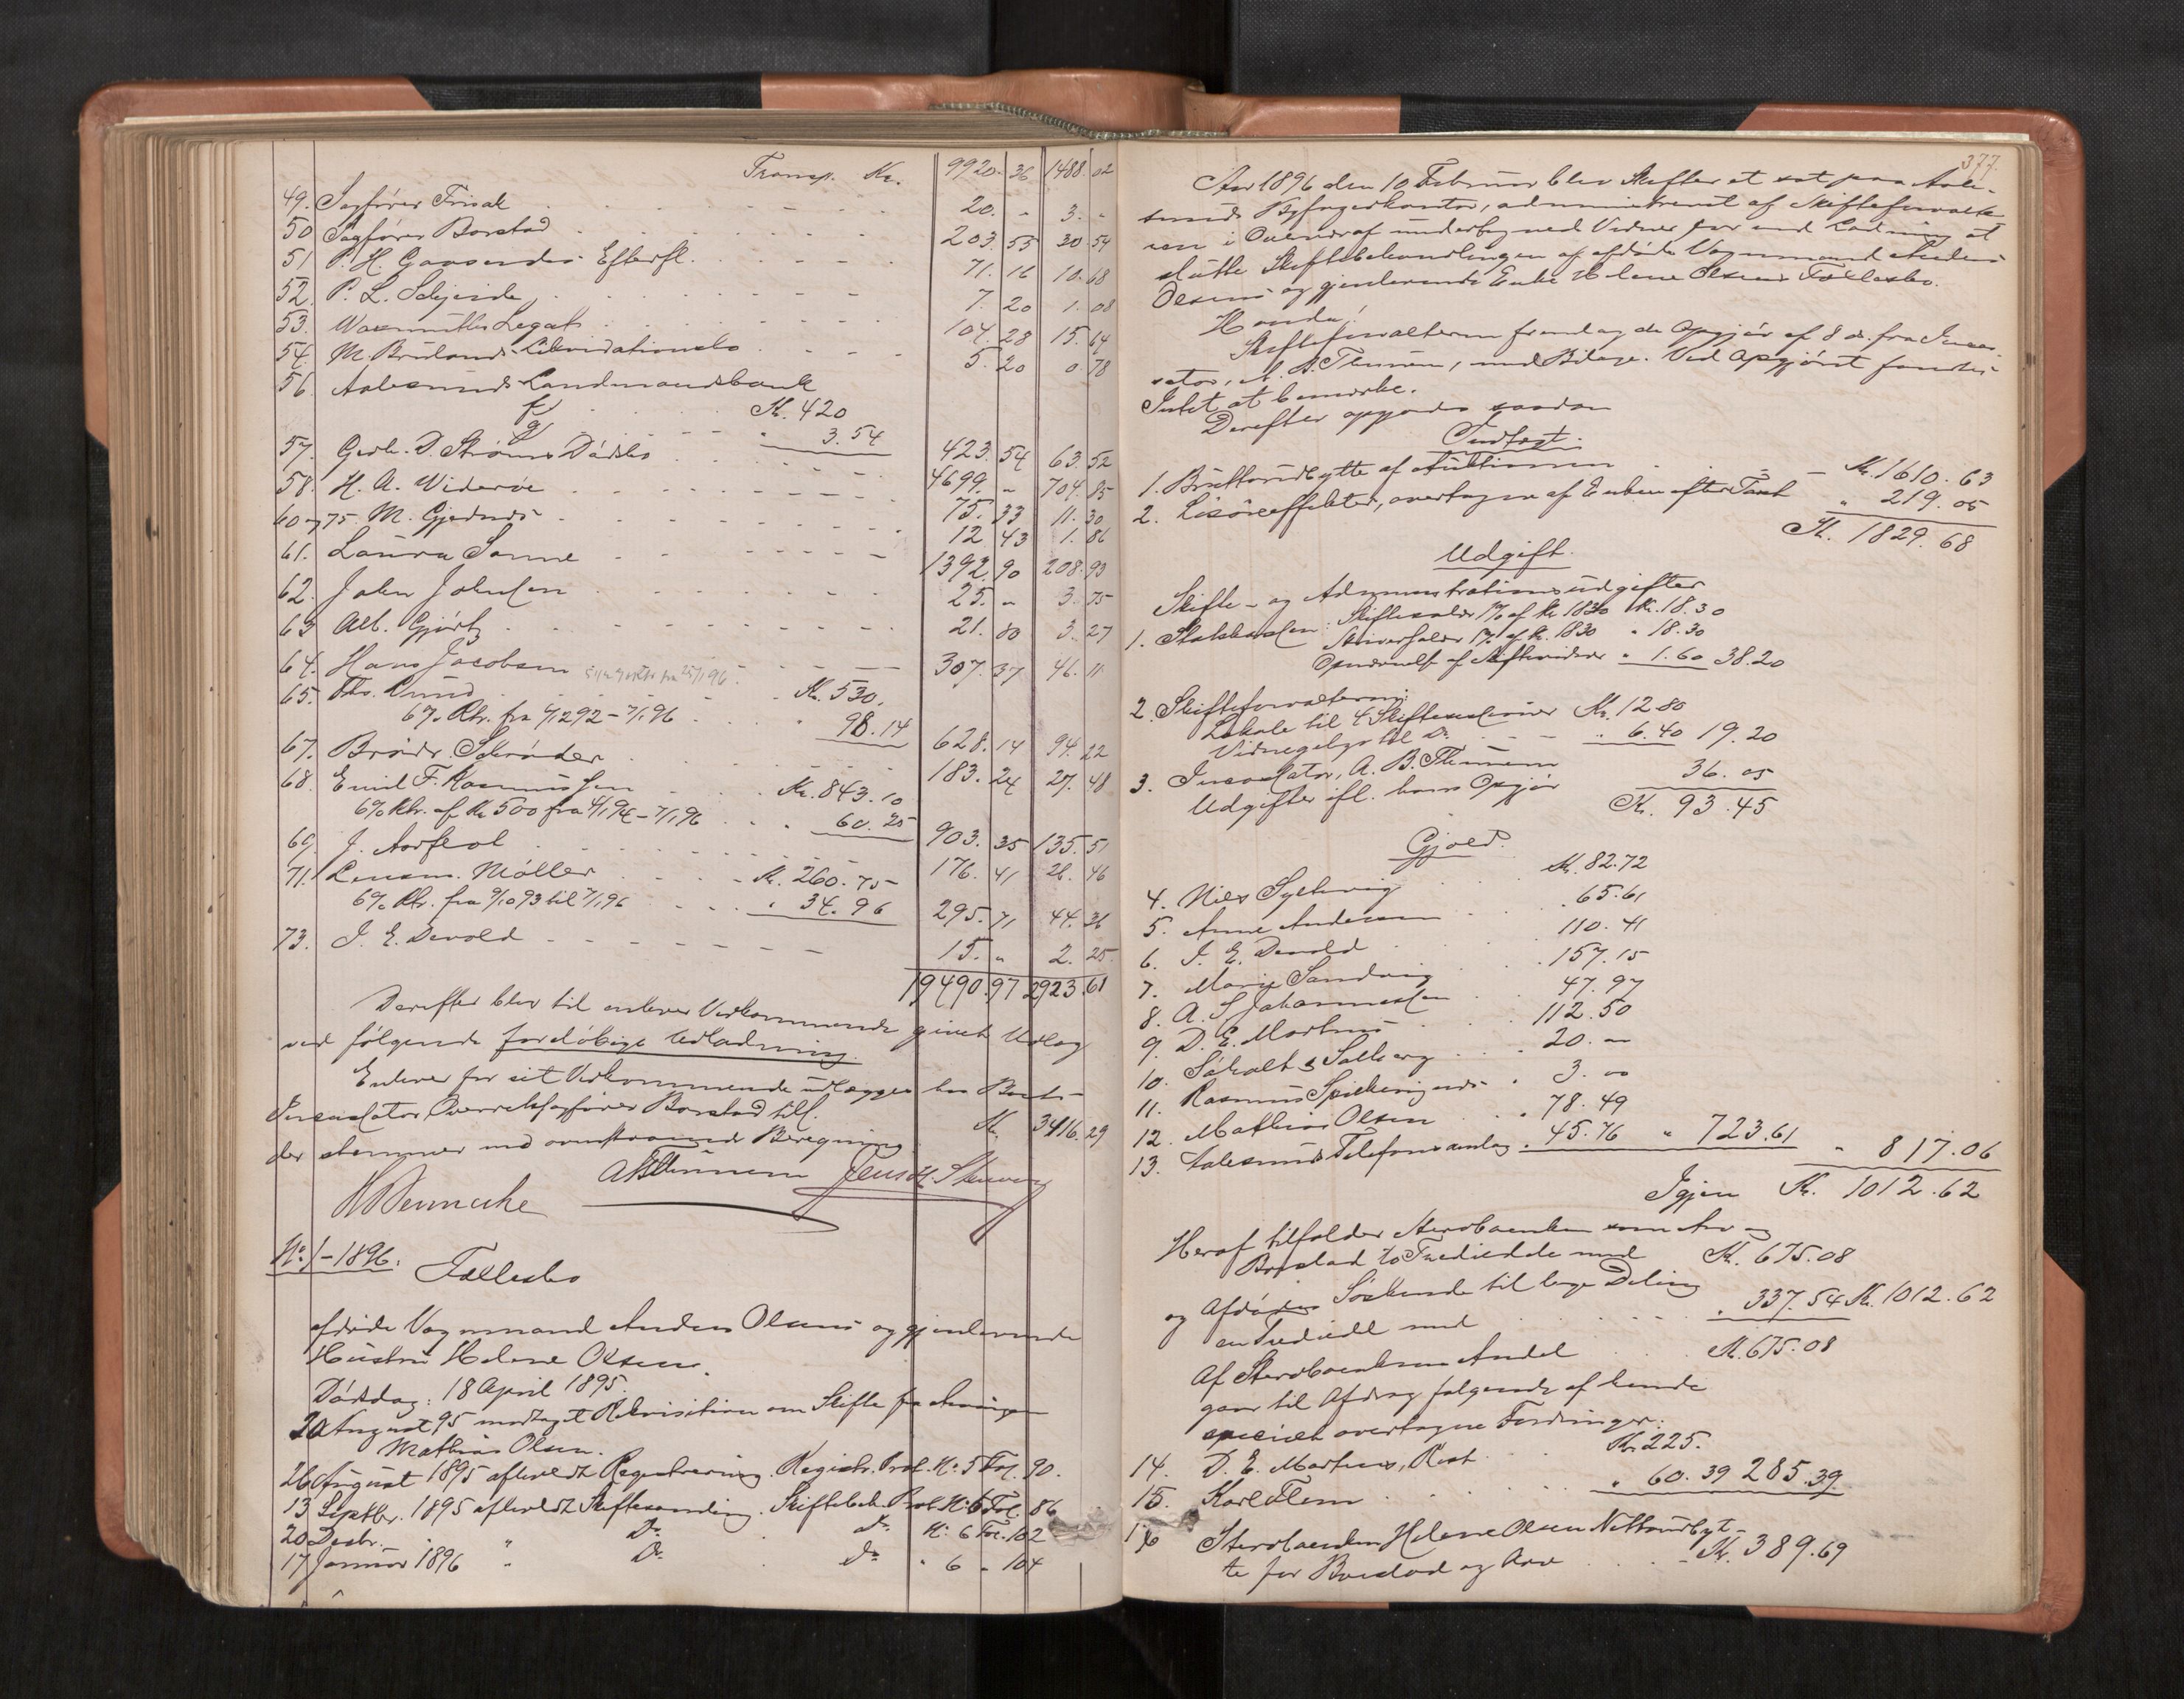 Transp. Kr. 9920. 36 1488. 02
49. Sagfører Frisak 20. " 3. "
50 Sagfører Borstad 203. 55 30. 54
51 P. H. Gaasendes Efterfl. 71. 16 10. 68
52. P. L. 7. 20 1. 08
53. Legat 104. 28 15. 64
54. M. Likvidationsbo 5. 20 0. 78
56. Aalesunds Landmandsbank
f Kr. 420
g " 3.54 423. 54 63. 52
57. Gerh. D. Strøms Dødsbo 4699. " 704. 85
58. H. A. Widerøe 75. 33 11. 30
60 og 75. M. Gjednes 12 43 1. 86
61. Laura Sonne 1392. 90 208. 93
62. John Johnsen 25. " 3. 75
63 Alb. Gjørtz 21. 80 3. 27
64. Hans Jacobsen 307. 37 46. 11
65. Ths. Rund Kr. 530.
6% Rtr. fra 4/12 92 – 7/1 96 " 98.14 628. 14 94. 22
67. Brødr. Schrøder 183. 24 27. 48
68. Emil F. Rasmussen Kr. 843. 10
6% Rtr. af Kr. 500 fra 4/1 94 – 7/1 96 " 60. 25 903. 35 135. 51
69. J. Aarflot 176. 41 26. 46
71. Lensm. Møller Kr. 260. 75
6% Rtr. fra 9/10 93 til 7/1 96 " 34. 96 295. 71 44. 36
73. J. E. Devold 15. " 2. 25.
19490. 97 2923. 61
Derefter blev til enhver Vedkommende givet Udlæg
ved følgende foreløbige Udlodning.
Enhver for sit Vedkommende udlægges hos Boets
Incassator Overretssagfører Borstad till. Kr. 3416. 29
der stemmer med ovenstaaende Beregning
A B Thinnem Jens H.
No 1 – 1896. Fællesbo
afdøde Vognmand Anders Olsens og gjenlevende
Hustru Helene Olsen.
Dødsdag: 18 April 1895.
20 August 95 modtaget Rekvisition om Skifte fra Arvingen
Mathias Olsen.
26 August 1895 afholdt Registrering. Registr. Prot. No 5 Fol. 90.
13 Septbr. 1895 afholdt Skiftesamling. Skiftebeh. Prot. No 6 Fol. 86
20 Decbr. " " Do Do No 6 Fol. 102
17 Januar 1896 " Do Do " 6 " 104
377.
Aar 1896 den 10 Februar blev Skifteret sat paa Aale-
sunds Byfogedkontor, administreret af Skifteforvalte
ren i Overvær af undertegned Vidner for ved Lodning at
slutte Skiftebehandlingen af afdøde Vognmand Anders
Olsens og gjenlevende Enke Helene Olsens Fællesbo.
Hvorda!
Skifteforvalteren fremlagde Opgjør af 8 ds. fra Incas-
sator, A. B. Thinnem, med Bilage. Ved Opgjøret fandtes
Intet at bemærke.
Derefter opgjordes saadan
Indtægt.
1. Bruttoudbytte af Auktionen Kr. 1610. 63
2. Løsøreeffekter, overtagen af Enken efter Taxt " 219. 05
Kr. 1829. 68
Udgift.
Skifte- og Administrationsudgifter
1. Statskassen: Skiftesalær 1% af Kr. 1830 Kr. 18. 30
Skriversalær 1% af Kr. 1830 " 18. 30
Opnævnelse af Skiftevidner " 1. 60 38. 20
2. Skifteforvalteren:
Lokale til 4 Skiftesessioner Kr. 12 80
Vidnegebyr til Do " 6. 40 19. 20
3. Incassator, A. B. Thinnem
Udgifter ifl. hans Opgjør 36. 05
Kr. 93. 45
Gjæld.
4. Niels Kr. 82. 72
5. Anne Andersen " 65. 61
6. J. E. Devold 110. 41
7. Marie Sandvig " 157. 15
8. A. S Johannessen 47. 97
9. D. E. Martens 112. 50
10. Søholt & Solberg " 20. "
11. Rasmus " 3. "
12. Mathias Olsen " 78. 49
13. Aalesunds Telefonsamlag " 45. 76 " 723. 61 " 817. 06
Igjen Kr. 1012. 62
Heraf tilfalder Stervboenken som Arv og
Boeslod to Trediedele med Kr. 675. 08
og Afdødes Søskende til lige Deling
en Trediedel med " 337. 54 Kr. 1012. 62
Af Stervboenkens Andel Kr. 675. 08
gaar til Afdrag følgende af hende
specielt overtagne Fordringer:
14. D. E. Martens, Rest Kr. 225.
15. Karl Flem " 60. 39 285. 39
16 Stervboenken Helene Olsen Nettoudbyt-
te for Boeslod og Arv Kr. 389. 69